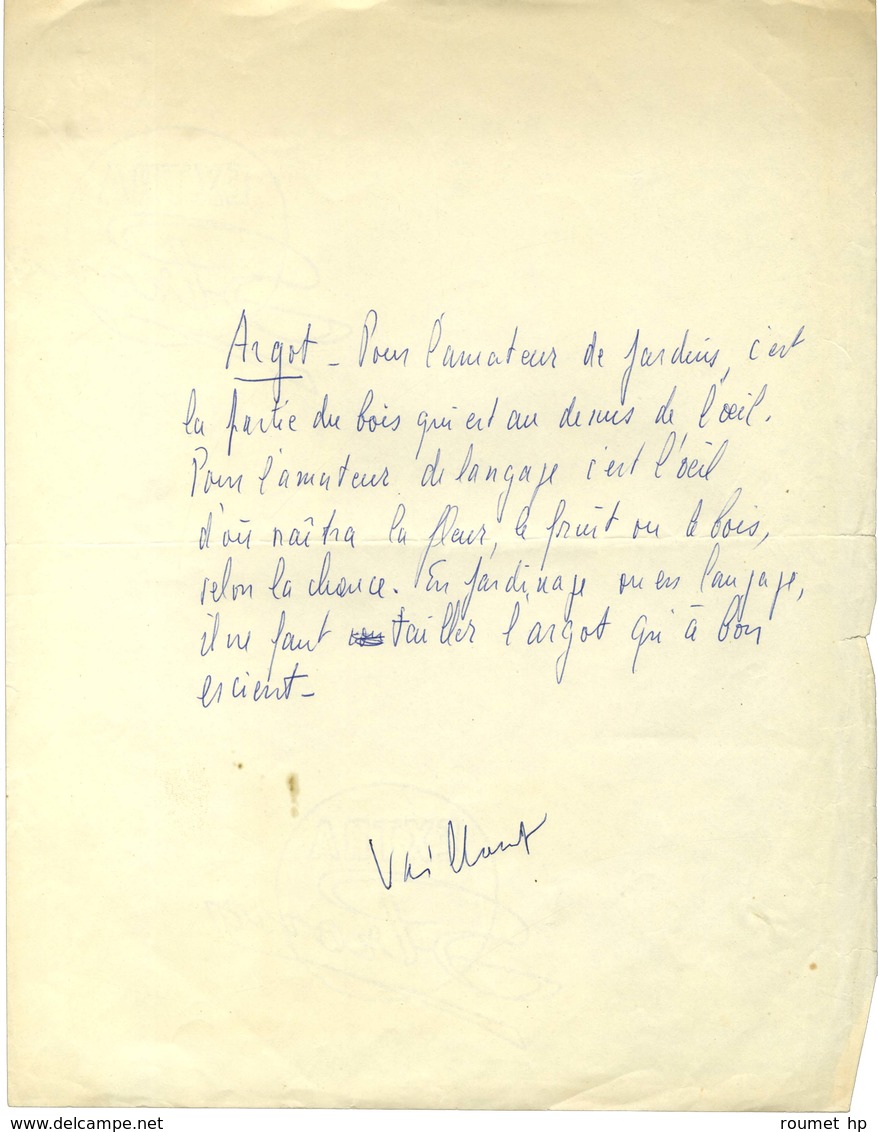 Argot - Pour l'amateur de jardins, c'est
la partie du bois qui est au dessus de l'oeil.
Pour l'amateur de langage c'est l'oeil
d'où naîtra la fleur, le fruit ou le bois,
selon la chance. En jardinage ou en langage,
il ne faut tailler l'argot qu'à bon
escient -
Vailland
delcampe.net
roumet hp